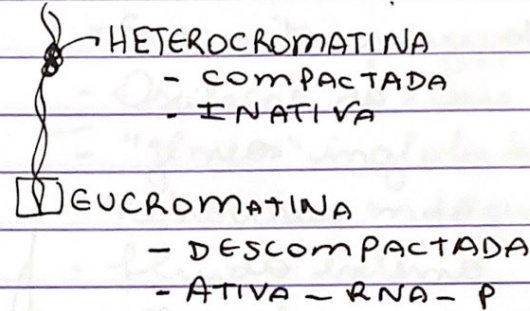 HETEROCROMATINA
- COMPACTADA
- INATIVA
EUCROMATINA
- DESCOMPACTADA
- ATIVA - RNA - P